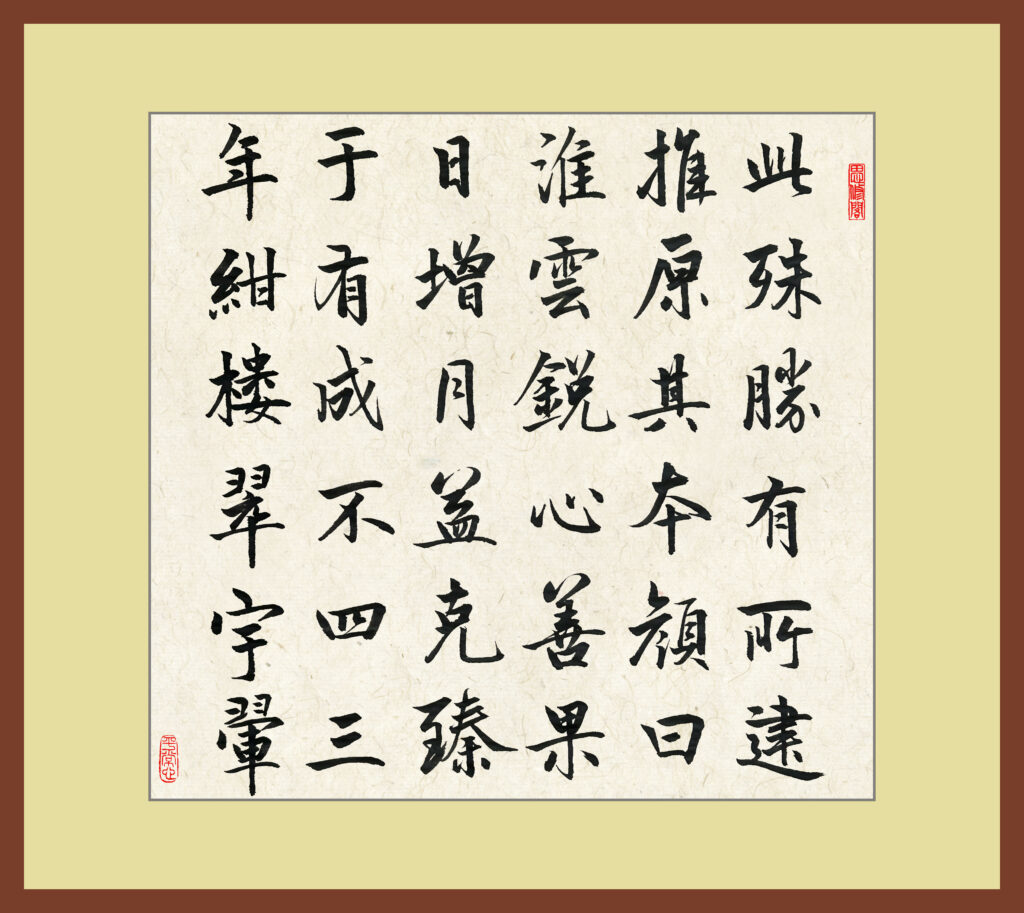 思修閣
此殊勝有所建
推原其本顏曰
淮雲鋭心善果
日增月益克臻
于有成不四三
年紺樓翠宇翬